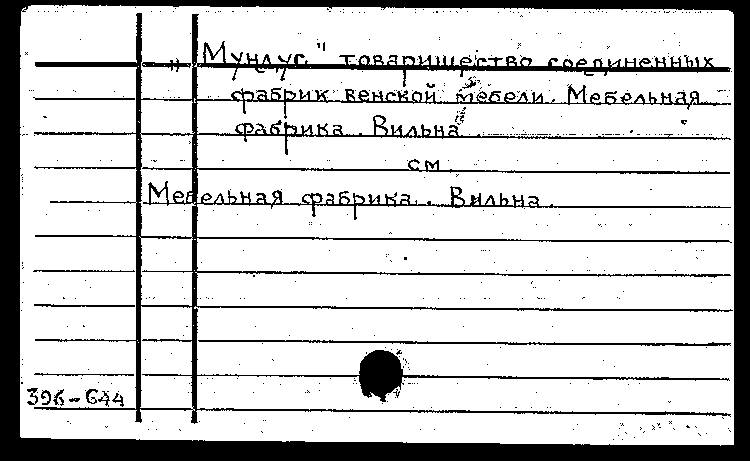 „Мундус" товарищество соединенных
фабрик венской мебели. Мебельная
фабрика. Вильна
см
Мебельная фабрика. Вильна.
396-644